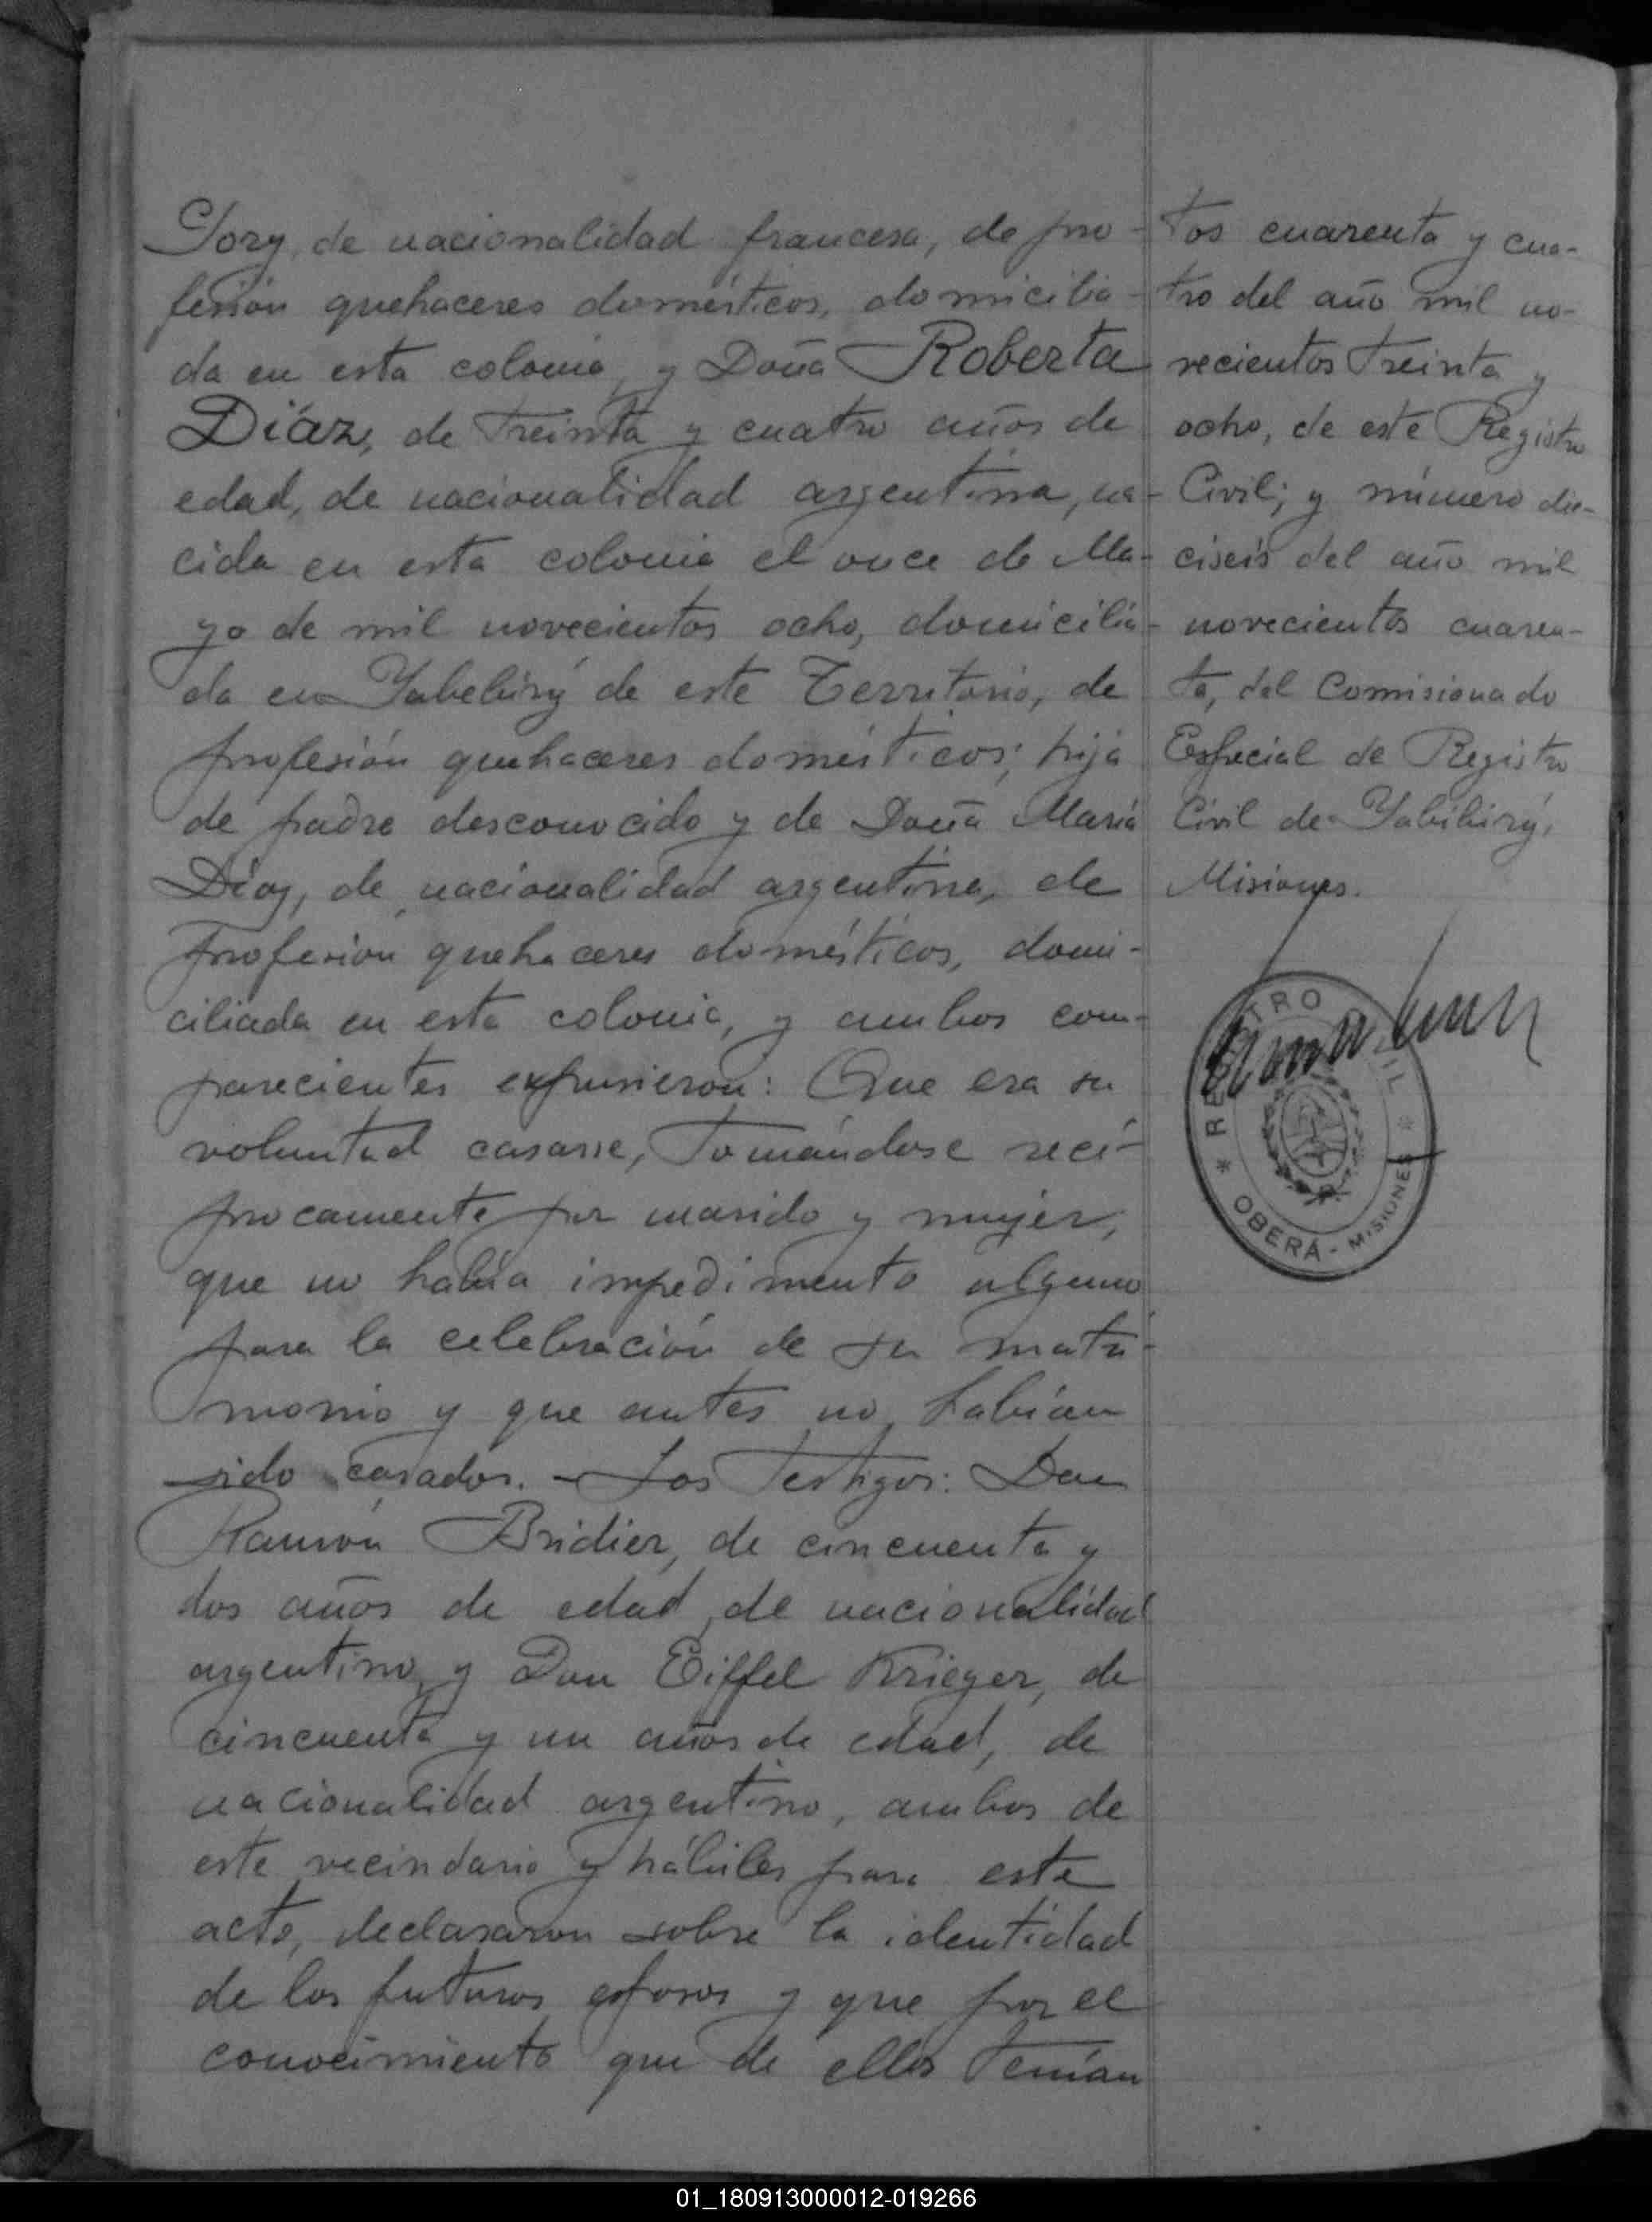 Gory, de nacionalidad francesa, de pro-
fesión quehaceres domésticos, domicilia-
da en esta colonia, y Doña Roberta
Díaz, de treinta y cuatro años de
edad, de nacionalidad argentina, na-
cida en esta colonia el once de Ma-
yo de mil novecientos ocho, domicilia-
da en Yabebirý de este Territorio, de
profesión quehaceres domésticos; hija
de padre desconocido y de Doña María
Díaz, de nacionalidad argentina, de
profesión quehaceres domésticos, domi-
ciliada en esta colonia, y ambos com-
parecientes expusieron: Que era su
voluntad casarse, tomándose recí-
procamente por marido y mujer,
que no había impedimento alguno
para la celebración de su matri-
monio y que antes no habían
sido casados. - Los testigos: Don
Ramón Bridier, de cincuenta y
dos años de edad, de nacionalidad
argentino, y Don Eiffel Krieger, de
cincuenta y un años de edad, de
nacionalidad argentino, ambos de
este vecindario y hábiles para este
acto, declararon sobre la identidad
de los futuros esposos y que por el
conocimiento que de ellos tenían
tos cuarenta y cua-
tro del año mil no-
vecientos treinta y
ocho, de este Registro
Civil; y número die-
ciseis del año mil
novecientos cuaren-
ta, del Comisionado
Especial de Registro
Civil de Yabibirý,
Misiones.
* REGISTRO CIVIL *
OBERÁ - MISIONES
01_180913000012-019266